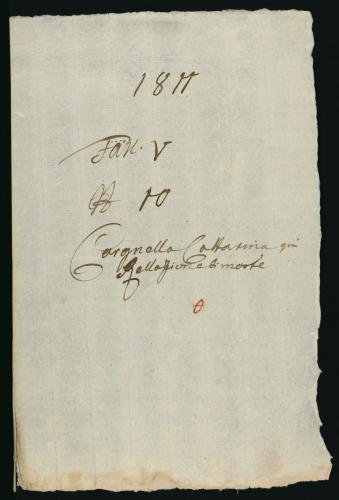 1811
Fasc. V
N 10
Cargnella Cattarina qm
Rellazione di morte
0